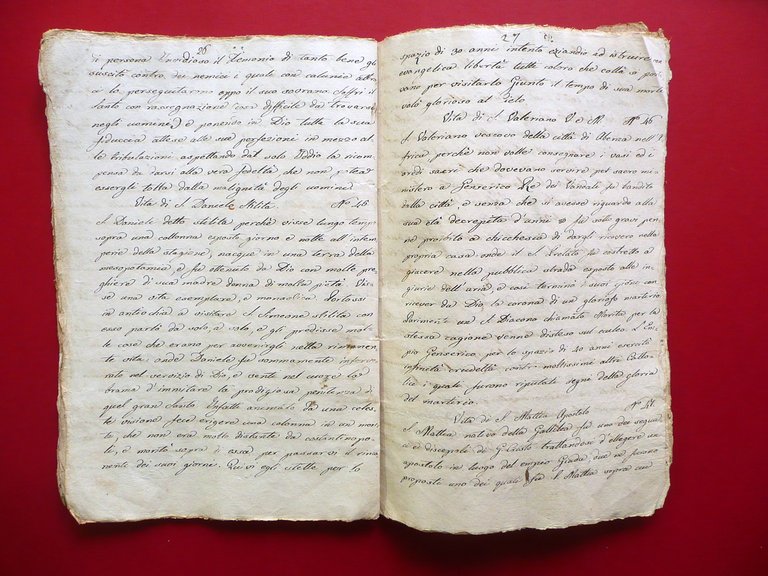 26
di persona Invidioso il Demonio di tanto bene gli
suscitò contro dei nemici i quali con calunie
lo perseguitarono appo il suo sovrano soffrì il
santo con rassegnazione cosa difficile da trovarsi
negli uomini) e ponendo in Dio tutta la sua
fiducia attese alle sue perfezioni in mezzo al
le tribulazioni aspettando dal solo Iddio la ricom
pensa da darsi alla vera fedeltà che non potea
essergli tolta dalla malignità degli uomini
Vita di S. Daniele Stilita No 45
S. Daniele detto stilita perchè visse lungo tempo
sopra una collonna esposto giorno e notte all'intem
perie della stagione, nacque in una terra della
mesopotamia, e fu ottenuto da Dio con molte pre
ghiere di sua madre donna di molta pietà
se una vita esemplare, e monastica Portossi
in antiochia a visitare S. Simeone stilita con
esso parlò da solo, a solo, e gli predisse mol
te cose che erano per avvenirgli nella rimanen
te vita, onde Daniele fu sommamente infervo
rato nel servizio di Dio, e sentì nel cuore la
brama d'immitare la prodigiosa penitenza di
quel gran Santo Infatti animato da una celes
te visione fece erigere una colonna in un mon
te, che non era molto distante da costantinopo
li, e montò sopra di essa per passarvi il rima
nente dei suoi giorni. Quivi egli stette per lo
27
spazio di 30 anni intento eziandio ad istruire
evangelica libertà tutti coloro che colà si porta
vano per visitarlo Giunto il tempo di sua morte
volò glorioso al Cielo
Vita di S. Valeriano V. e M. No 46
S. Valeriano vescovo della città di Abensa nell'A
frica, perchè non volle consegnare i vasi ed i
ordi sacri che dovevano servire pel sacro mi
nistero a Genserico Re dei Vandali fu bandito
dalla città, e senza che si avesse riguardo alla
sua età decrepita d'anni fu sotto gravi pe
ne proibito a chichessia di dargli ricovero nella
propria casa onde il S. Prelato fu costretto a
giacere nella pubblica strada esposto alle in
giurie dell'aria, e così terminò i suoi giorni con
ricever da Dio, la corona di un glorioso martirio
un S. Diacono chiamato per la
stessa cagione venne disteso sul culeo. L'em
pio Genserico, per lo spazio di 40 anni esercitò
infinite crudeltà contro moltissimi altri Catto
lici i quali furono riputati degni della gloria
del martirio
Vita di S. Mattia Apostolo No 47
S. Mattia nativo della Gallilea fu uno dei segua
ci e discepoli di G. Cristo trattandosi d'eleggere un
apostolo in luogo del empio Giuda due ne furono
proposti uno dei quali fu S. Mattia sopra cui